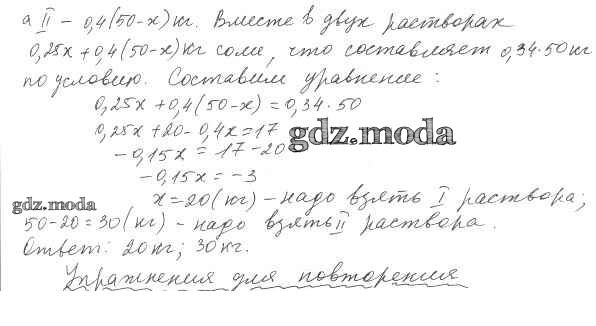 а II – 0,4(50-x) кг. Вместе в двух растворах
0,25x + 0,4(50-x) кг соли, что составляет 0,34·50 кг
по условию. Составим уравнение:
0,25x + 0,4(50-x) = 0,34·50
0,25x + 20 - 0,4x = 17
gdz.moda
-0,15x = 17 - 20
-0,15x = -3
gdz.moda
x = 20 (кг) - надо взять I раствора;
50-20 = 30 (кг) - надо взять II раствора.
Ответ: 20кг; 30кг.
Упражнения для повторения